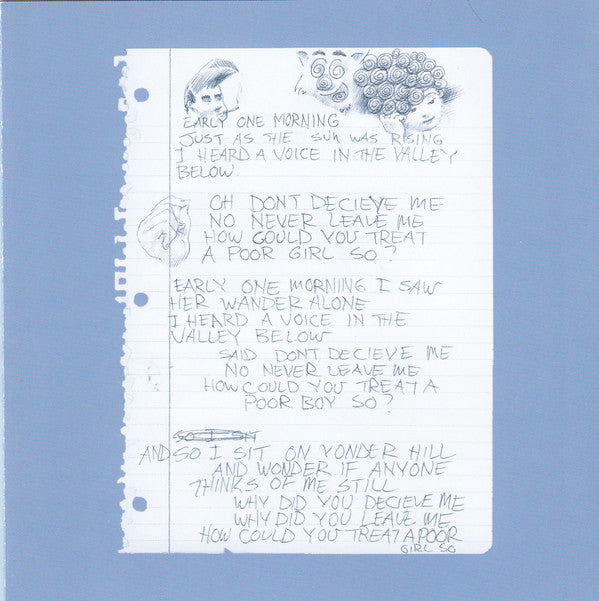 EARLY ONE MORNING
JUST AS THE SUN WAS RISING
I HEARD A VOICE IN THE VALLEY
BELOW.
OH DONT DECIEVE ME
NO NEVER LEAVE ME
HOW COULD YOU TREAT
A POOR GIRL SO?
EARLY ONE MORNING I SAW
HER WANDER ALONE
I HEARD A VOICE IN THE
VALLEY BELOW
SAID DONT DECIEVE ME
NO NEVER LEAVE ME
HOW COULD YOU TREAT A
POOR BOY SO?
SO I SIT
AND SO I SIT ON YONDER HILL
AND WONDER IF ANYONE
THINKS OF ME STILL
WHY DID YOU DECIEVE ME
WHY DID YOU LEAVE ME
HOW COULD YOU TREAT A POOR
GIRL SO